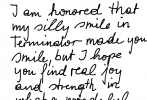 I am honored that
my silly smile in
Terminator made you
smile, but I hope
you find real joy
and strength in